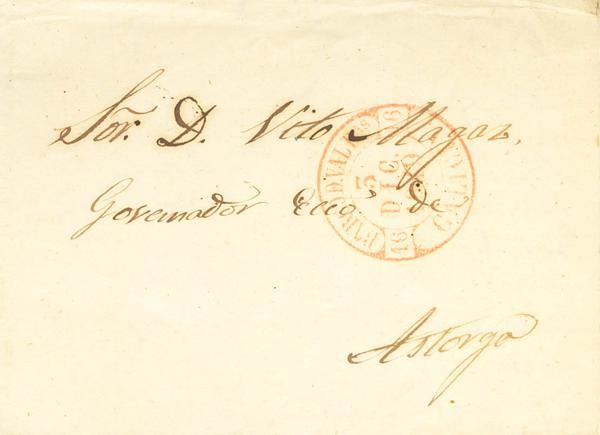 Sor. D. Vito Magaz,
Governador Ecco. de
Astorga
5
DIC
18
GALICIA